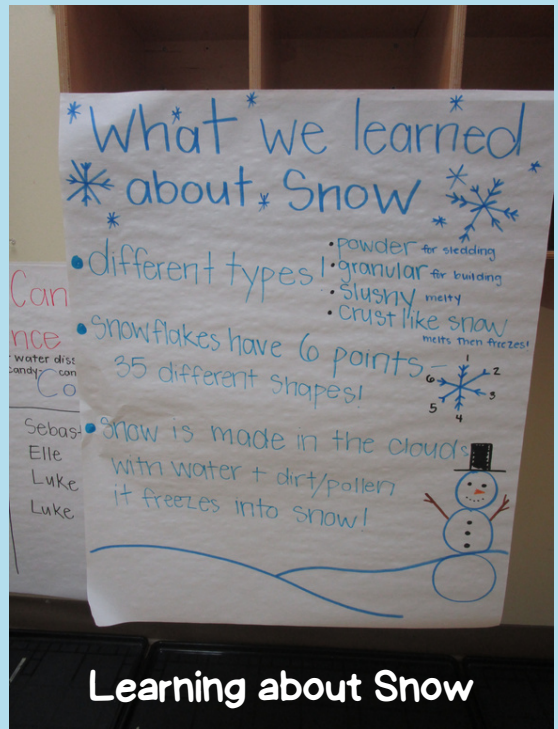 What we learned
about Snow
• different types!
• powder for sledding
• granular for building
• slushy melty
• crust like snow
melts then freezes!
• snowflakes have 6 points -
35 different shapes!
1
2
3
4
5
6
• snow is made in the clouds
with water + dirt/pollen
it freezes into snow!
Can
nce
water diss
candy- con
Co
Sebas
Elle
Luke
Luke
Learning about Snow